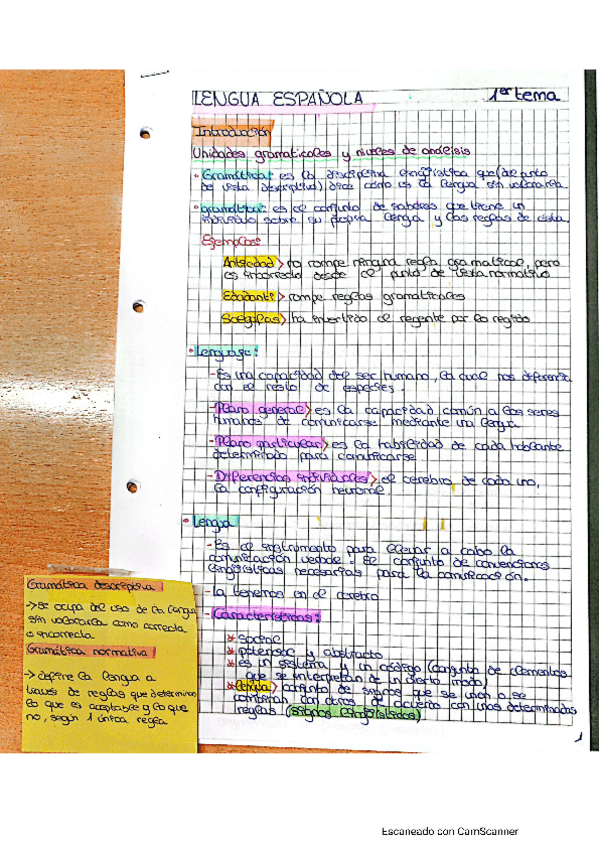 LENGUA ESPAÑOLA 1er tema
Introducción
Unidades gramaticales y niveles de análisis
• Gramática: es la disciplina lingüística que (de punto
de vista descriptivo) dice cómo es la lengua sin valorarla.
• gramática: es el conjunto de saberes que tiene un
individuo sobre su propia lengua y las reglas de ésta.
Ejemplos:
> no rompe ninguna regla gramatical, pero
es incorrecto desde el punto de vista normativo
> rompe reglas gramaticales
> ha invertido el regente por lo regido
• Lenguaje:
- Es una capacidad del ser humano, la cual nos diferencia
con el resto de especies.
- Plano general > es la capacidad común a los seres
humanos de comunicarse mediante una lengua
- Plano particular > es la habilidad de cada hablante
determinado para comunicarse
- Diferencias individuales > el cerebro de cada uno,
la configuración neuronal.
• Lengua
- Es el instrumento para llevar a cabo la
comunicación verbal. El conjunto de convenciones
lingüísticas necesarias para la comunicación.
- La tenemos en el cerebro
- Características:
* social
* potencial y abstracto
* es un sistema y un código (conjunto de elementos
que se interpretan de un cierto modo)
* lengua > conjunto de signos que se unen o se
combinan con otros de acuerdo con unas determinadas
reglas (signos lingüísticos)
Gramática descriptiva
→ se ocupa del uso de la lengua
sin valorarla como correcta
o incorrecta
Gramática normativa
→ define la lengua a
través de reglas que determinan
lo que es aceptable y lo que
no, según 1 única regla
1
Escaneado con CamScanner